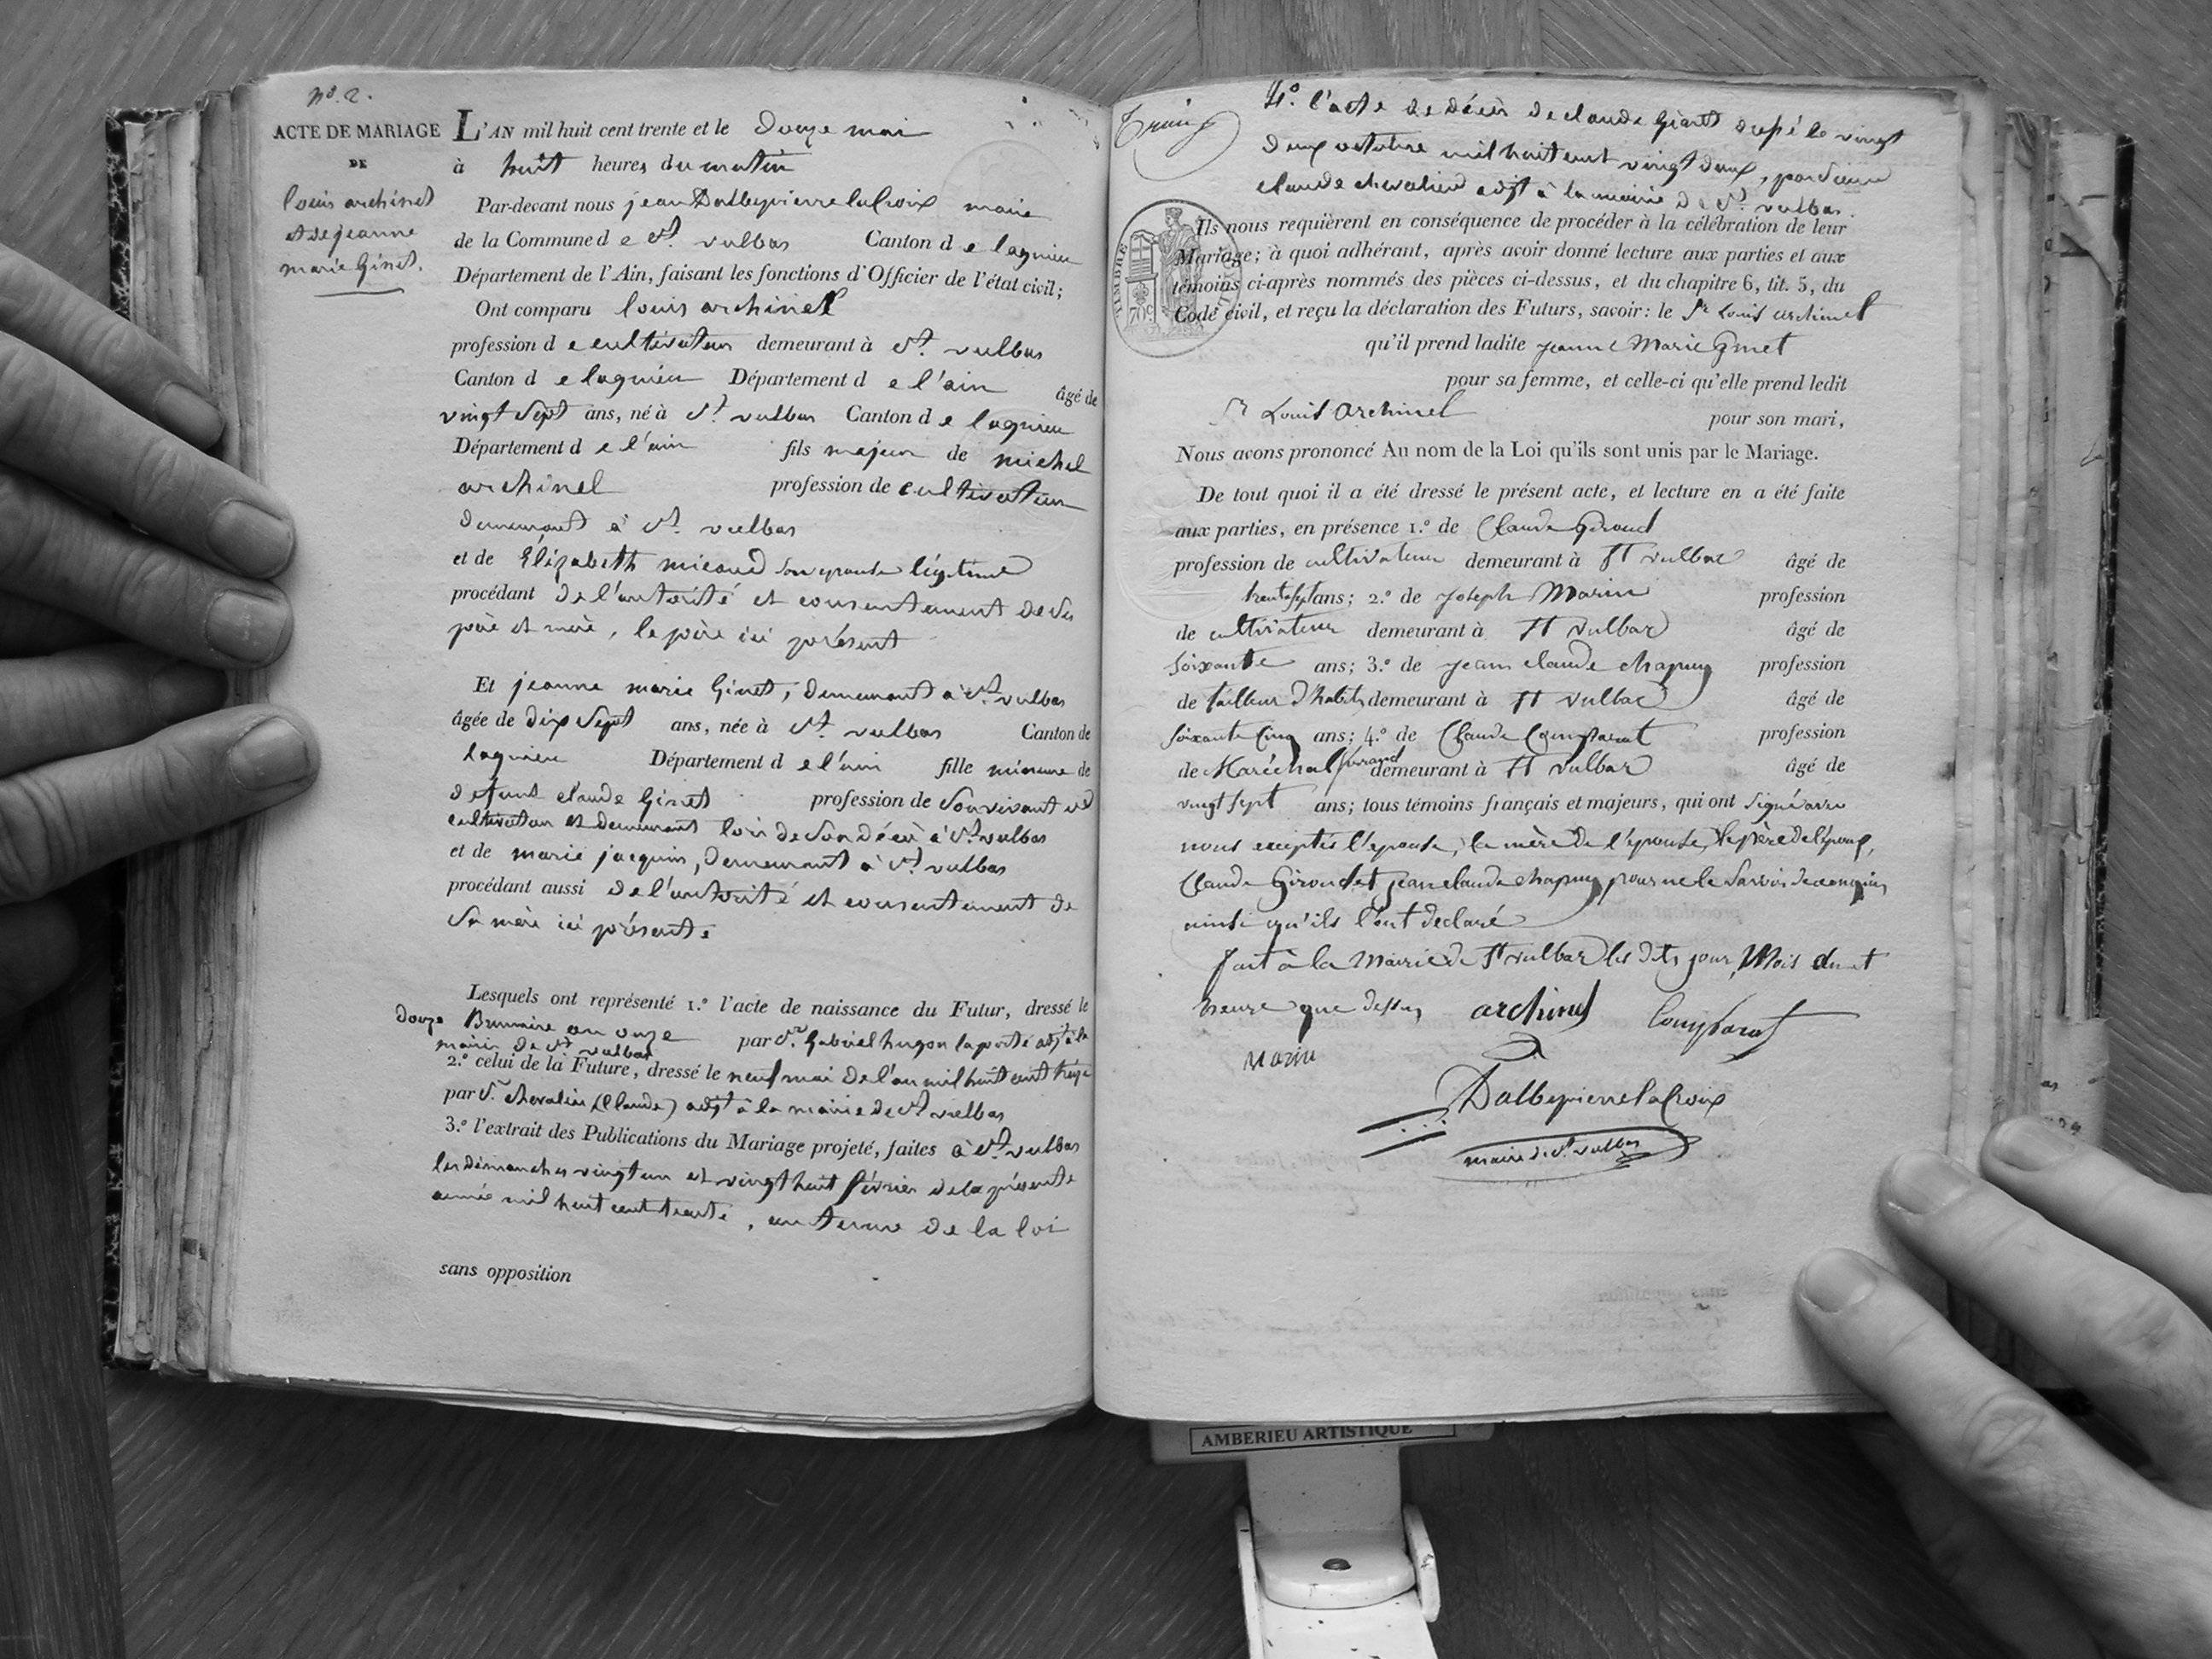 n.º 2.
ACTE DE MARIAGE
DE
louis archinet
et de jeanne
marie Ginet.
L'AN mil huit cent trente et le douze mai
à huit heures du matin
Par-devant nous jean Dalbepierre lacroix maire
de la Commune d e St. vulbas Canton d e lagnieu
Département de l'Ain, faisant les fonctions d'Officier de l'état civil;
Ont comparu louis archinet
profession d e cultivateur demeurant à St. vulbas
Canton d e lagnieu Département d e l'ain âgé de
vingt sept ans, né à St. vulbas Canton d e lagnieu
Département d e l'ain fils majeur de michel
archinel profession de cultivateur
demeurant à St. vulbas
et de Elizabeth micaud son epouse légitime
procédant de l'autorité et consentement de ses
père et mère, le père ici présent
Et jeanne marie Ginet, demeurant à St. vulbas
âgée de dix sept ans, née à St. vulbas Canton de
lagnieu Département d e l'ain fille mineure de
defunt claude Ginet profession de son vivant
cultivateur et demeurant lors de son décès à St. vulbas
et de marie jacquin, demeurant à St. vulbas
procédant aussi de l'autorité et consentement de
sa mère ici présente
Lesquels ont représenté 1.º l'acte de naissance du Futur, dressé le
douze Brumaire an onze par Sr. Gabriel hugon laporte adjt à la
mairie de St vulbas
2.º celui de la Future, dressé le neuf mai de l'an mil huit cent treize
par Sr. chevalier (Claude) adjt à la mairie de St vulbas
3.º l'extrait des Publications du Mariage projeté, faites à St. vulbas
les dimanches vingt un et vingt huit février de la présente
année mil huit cent trente, en terme de la loi
sans opposition
4.º l'acte de décès de claude Ginet dressé le vingt
deux octobre mil huit cent vingt deux, par Sieur
claude chevalier adjt à la mairie de St. vulbas.
TIMBRE
70c
Ils nous requièrent en conséquence de procéder à la célébration de leur
Mariage; à quoi adhérant, après avoir donné lecture aux parties et aux
témoins ci-après nommés des pièces ci-dessus, et du chapitre 6, tit. 5, du
Code civil, et reçu la déclaration des Futurs, savoir: le Sr Louis archinet
qu'il prend ladite jeanne Marie Ginet
pour sa femme, et celle-ci qu'elle prend ledit
Sr Louis Archinel pour son mari,
Nous avons prononcé Au nom de la Loi qu'ils sont unis par le Mariage.
De tout quoi il a été dressé le présent acte, et lecture en a été faite
aux parties, en présence 1.º de Claude Giroud
profession de cultivateur demeurant à St vulbas âgé de
trente sept ans; 2.º de joseph Marin profession
de cultivateur demeurant à St vulbas âgé de
soixante ans; 3.º de jean claude chapuy profession
de tailleur d'habits demeurant à St vulbas âgé de
soixante cinq ans; 4.º de Claude Comparat profession
de Maréchal ferrand demeurant à St vulbas âgé de
vingt sept ans; tous témoins français et majeurs, qui ont signé avec
nous exceptés l'epouse, la mère de l'épouse, le père de l'époux,
Claude Giroud et jean claude chapuy pour ne le savoir de ce enquis
ainsi qu'ils l'ont declaré
fait à la Mairie de St vulbas les dits jour, Mois an et
heure que dessus archinet Comparat
Marin
Dalbepierre lacroix
maire de St. vulbas
AMBERIEU ARTISTIQUE